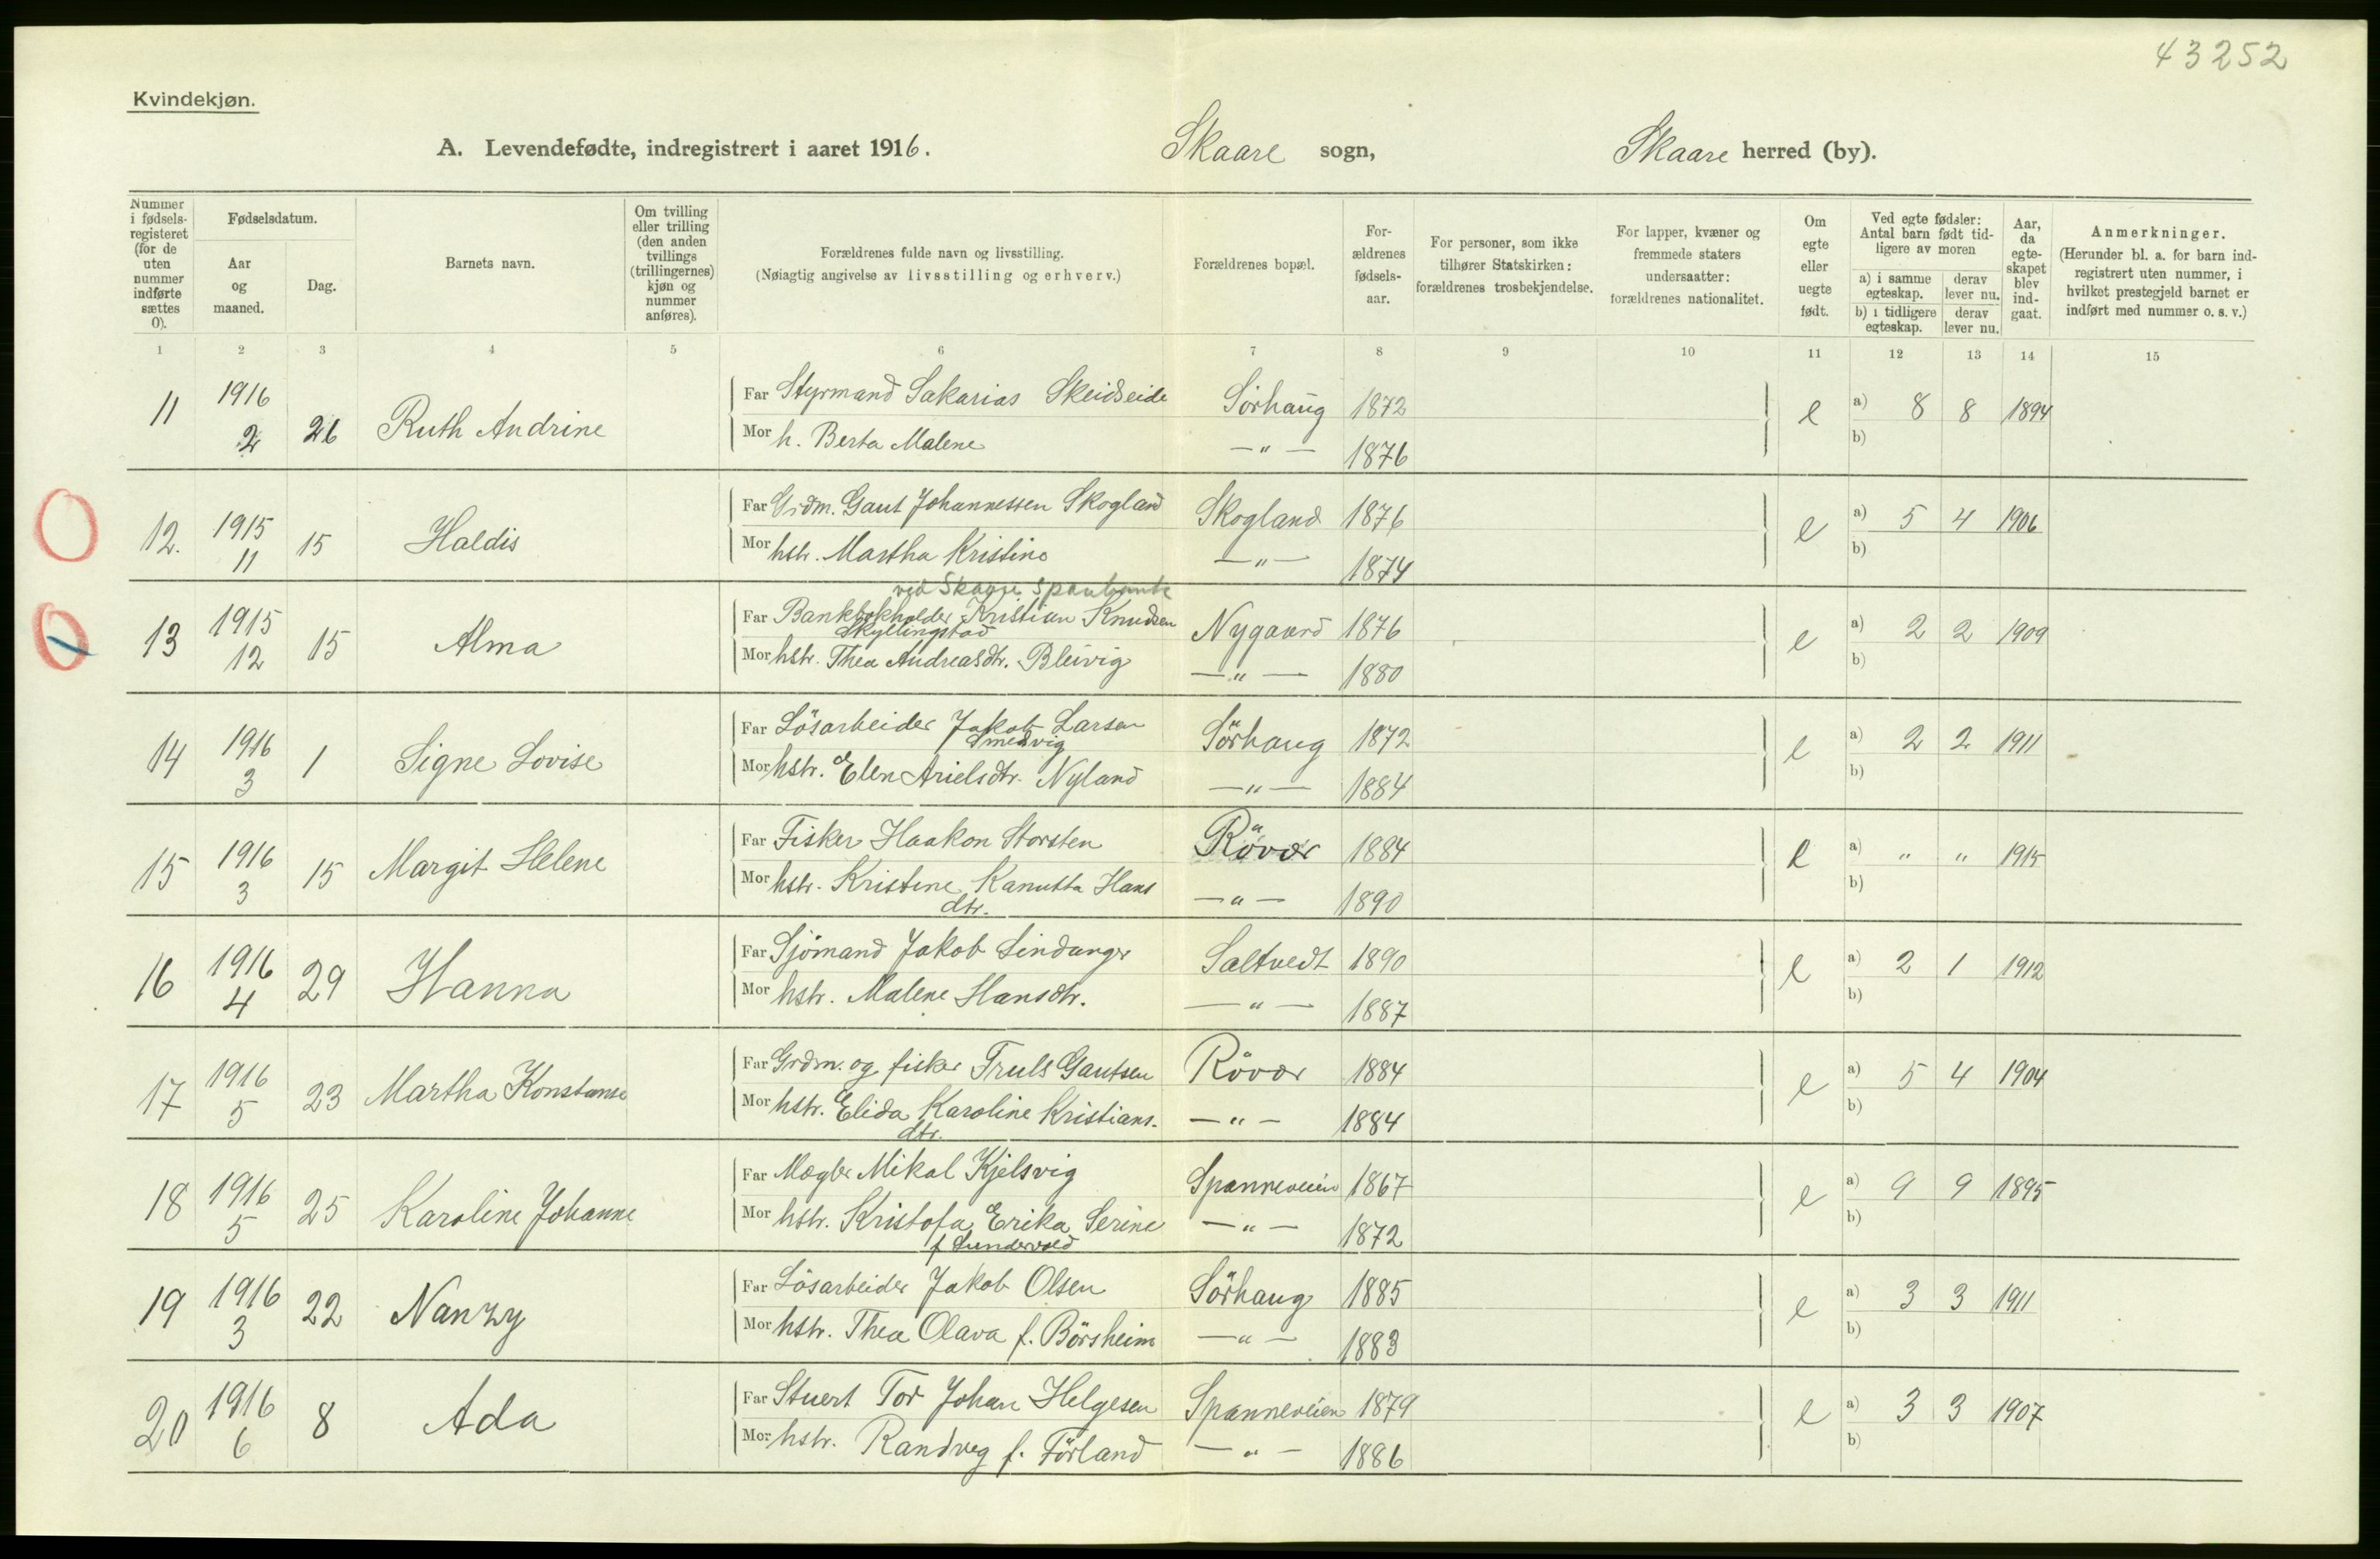 43252
Kvindekjøn.
A. Levendefødte, indregistrert i aaret 1916. Skaare sogn, Skaare herred (by).
Nummer i fødsels-registeret (for de uten nummer indførte sættes 0).
Fødselsdatum.
Aar og maaned.
Dag.
Barnets navn.
Om tvilling eller trilling (den anden tvillings (trillingernes) kjøn og nummer anføres).
Forældrenes fulde navn og livsstilling.
(Nøiagtig angivelse av livsstilling og erhverv.)
Forældrenes bopæl.
For-ældrenes fødsels-aar.
For personer, som ikke tilhører Statskirken: forældrenes trosbekjendelse.
For lapper, kvæner og fremmede staters undersaatter: forældrenes nationalitet.
Om egte eller uegte født.
Ved egte fødsler: Antal barn født tid-ligere av moren
a) i samme egteskap. derav lever nu.
b) i tidligere egteskap. derav lever nu.
Aar, da egte-skapet blev ind-gaat.
Anmerkninger.
(Herunder bl. a. for barn ind-registrert uten nummer, i hvilket prestegjeld barnet er indført med nummer o. s. v.)
1 2 3 4 5 6 7 8 9 10 11 12 13 14 15
11 1916 2 26 Ruth Andrine
Far Styrmand Sakarias Skeidseide Sörhaug 1872 e a) 8 8 1894
Mor h. Berta Malene —"— 1876 b)
12. 1915 11 15 Haldis
Far Grdm. Gaut Johannessen Skogland Skogland 1876 e a) 5 4 1906
Mor hstr. Martha Kristine —"— 1874 b)
ved Skaare Sparebank
13 1915 12 15 Alma
Far Bankbokholder Kristian Knudsen Nygaard 1876 e a) 2 2 1909
Skyllingstad
Mor hstr. Thea Andreasdtr. Bleivig —"— 1880 b)
14 1916 3 1 Signe Lovise
Far Lösarbeider Jakob Larsen Sörhaug 1872 e a) 2 2 1911
Smedvig
Mor hstr. Elen Arielsdtr. Nyland —"— 1884 b)
15 1916 3 15 Margit Helene
Far Fisker Haakon Storsten Rövær 1884 e a) " " 1915
Mor hstr. Kristine Kanutta Hans —"— 1890 b)
dtr.
16 1916 4 29 Hanna
Far Sjömand Jakob Lindanger Saltvedt 1890 e a) 2 1 1912
Mor hstr. Malene Hansdtr. —"— 1887 b)
17 1916 5 23 Martha Konstanse
Far Grdm. og fisker Truls Gautsen Rövær 1884 e a) 5 4 1904
Mor hstr. Elida Karoline Kristians- —"— 1884 b)
dtr.
18 1916 5 25 Karoline Johanne
Far Mægler Mikal Kjelsvig Spanneveien 1867 e a) 9 9 1895
Mor hstr. Kristofa Erika Serine —"— 1872 b)
f. Sundervold
19 1916 3 22 Nanzy
Far Lösarbeider Jakob Olsen Sörhaug 1885 e a) 3 3 1911
Mor hstr. Thea Olava f. Börsheim —"— 1883 b)
20 1916 6 8 Ada
Far Stuert Tor Johan Helgesen Spanneveien 1879 e a) 3 3 1907
Mor hstr. Randveg f. Förland —"— 1886 b)